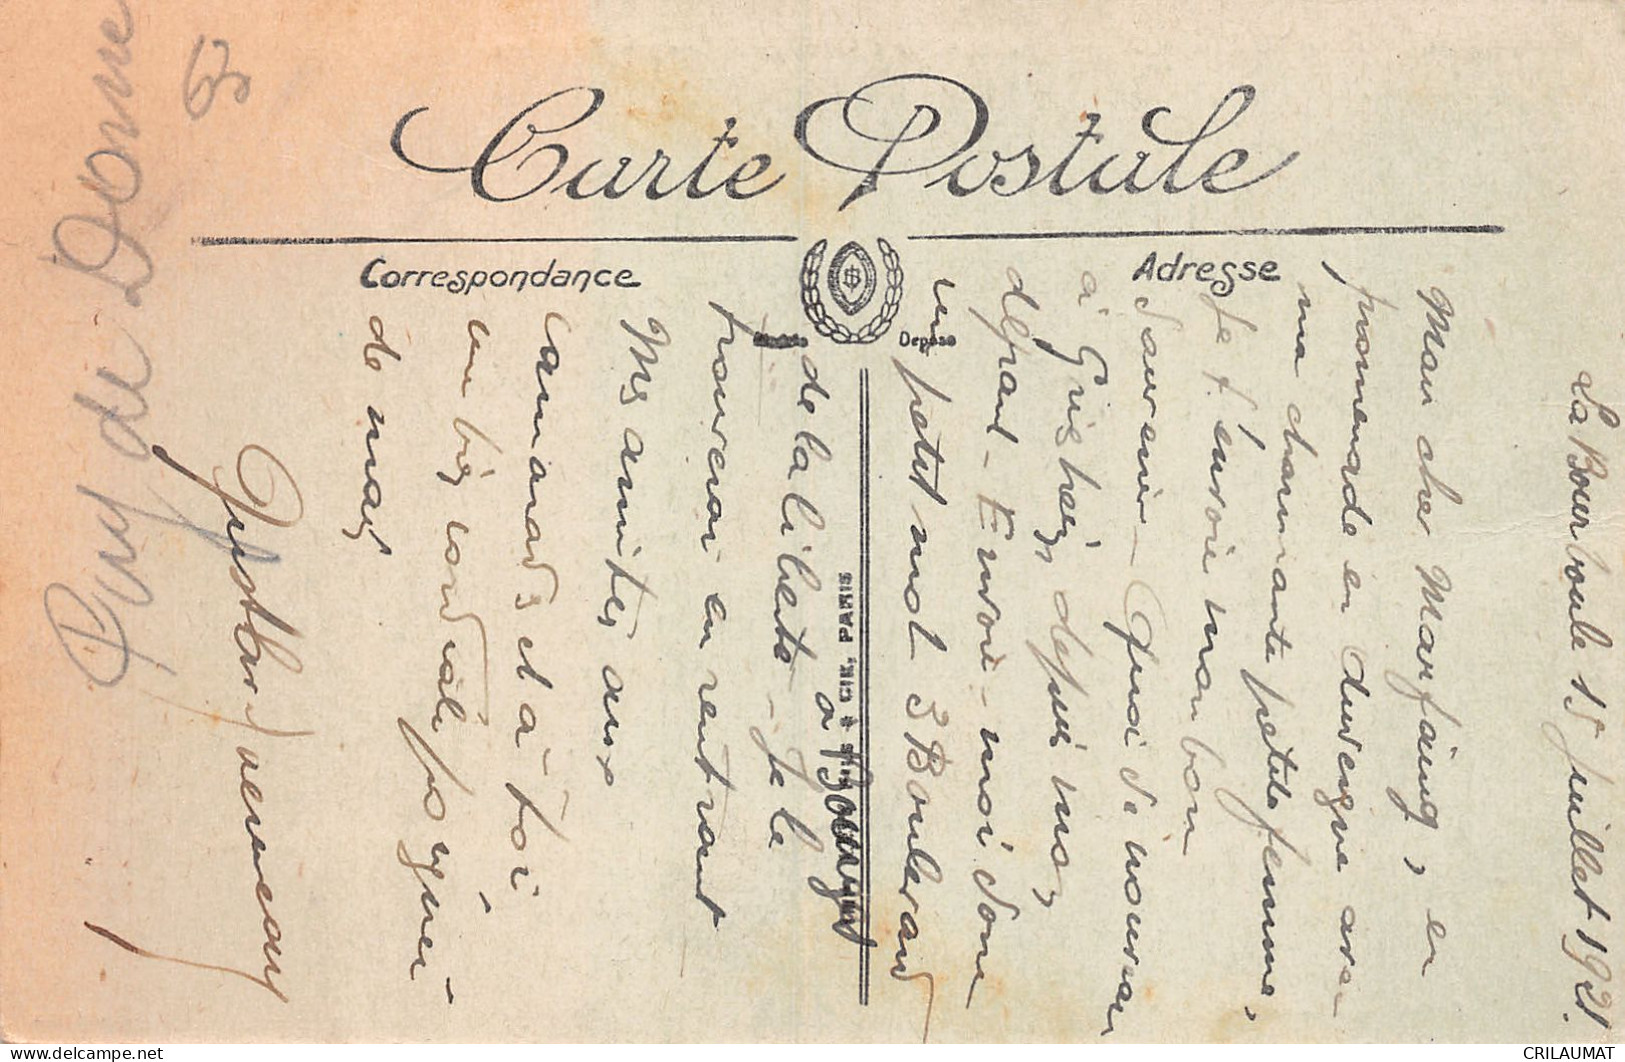 Carte Postale
Correspondance
Adresse
Déposé
& CIE, PARIS
Puy de Dome
63
La Bourboule 15 juillet 1921.
Mon cher Marfaing, en
promenade en Auvergne avec
ma charmante petite femme,
je t'envoie mon bon
souvenir - Quoi de nouveau
à Griesheim depuis mon
départ - Envoie-moi donc
un petit mot 3 Boulevard
de la liberté à Bourges
- Je le
trouverai en rentrant
Mes amitiés aux
camarades et à toi
une bien cordiale poignée
de main